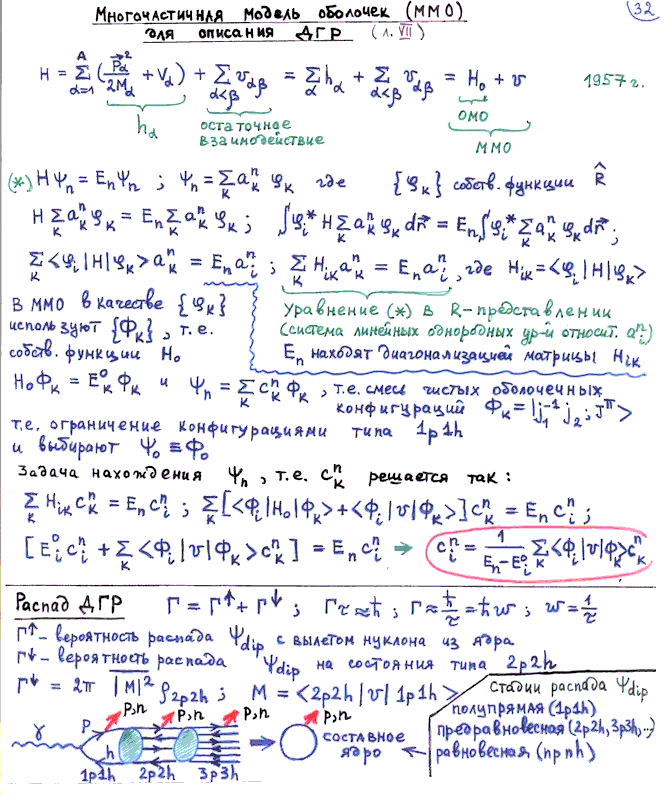 32
Многочастичная модель оболочек (ММО)
для описания ДГР (л. VII)
H = Σ_{α=1}^{A} (p⃗_α²/2M_α + V_α) + Σ_{α<β} v_{αβ} = Σ_α h_α + Σ_{α<β} v_{αβ} = H₀ + v 1957 г.
h_α остаточное взаимодействие ОМО
ММО
(*) HΨ_n = E_nΨ_n ; Ψ_n = Σ_K a_K^n φ_K где {φ_K} собств. функции R̂
H Σ_K a_K^n φ_K = E_n Σ_K a_K^n φ_K ; ∫φ_i^* H Σ_K a_K^n φ_K dr⃗ = E_n ∫φ_i^* Σ_K a_K^n φ_K dr⃗ ;
Σ_K <φ_i|H|φ_K> a_K^n = E_n a_i^n ; Σ_K H_{iK} a_K^n = E_n a_i^n , где H_{iK} = <φ_i|H|φ_K>
В ММО в качестве {φ_K}
используют {Φ_K}, т.е.
собств. функции H₀
Уравнение (*) в R-представлении
(система линейных однородных ур-й относит. a_i^n)
E_n находят диагонализацией матрицы H_{iK}
H₀Φ_K = E_K^0 Φ_K и Ψ_n = Σ_K c_K^n Φ_K , т.е. смесь чистых оболочечных
конфигураций Φ_K = |j₁^{-1} j₂; J^π>
т.е. ограничение конфигурациями типа 1p1h
и выбирают Ψ₀ ≡ Φ₀
Задача нахождения Ψ_n, т.е. c_K^n решается так:
Σ_K H_{iK} c_K^n = E_n c_i^n ; Σ_K [<Φ_i|H₀|Φ_K> + <Φ_i|v|Φ_K>] c_K^n = E_n c_i^n ;
[E_i^0 c_i^n + Σ_K <Φ_i|v|Φ_K> c_K^n] = E_n c_i^n → c_i^n = 1/(E_n − E_i^0) Σ_K <Φ_i|v|Φ_K> c_K^n
Распад ДГР Γ = Γ↑ + Γ↓ ; Γτ ≈ ħ ; Γ ≈ ħ/τ = ħw ; w = 1/τ
Γ↑ – вероятность распада Ψ_dip с вылетом нуклона из ядра
Γ↓ – вероятность распада Ψ_dip на состояния типа 2p2h
Γ↓ = 2π |M|² ρ_{2p2h} ; M = <2p2h|v|1p1h>
Стадии распада Ψ_dip
полупрямая (1p1h)
предравновесная (2p2h, 3p3h,..)
равновесная (npnh)
p,n p,n p,n p,n
γ p h
составное
ядро
1p1h 2p2h 3p3h